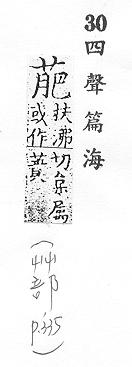 30 四聲篇海
萉
扶沸切枲屬
或作蕡
(艸部 p.335)